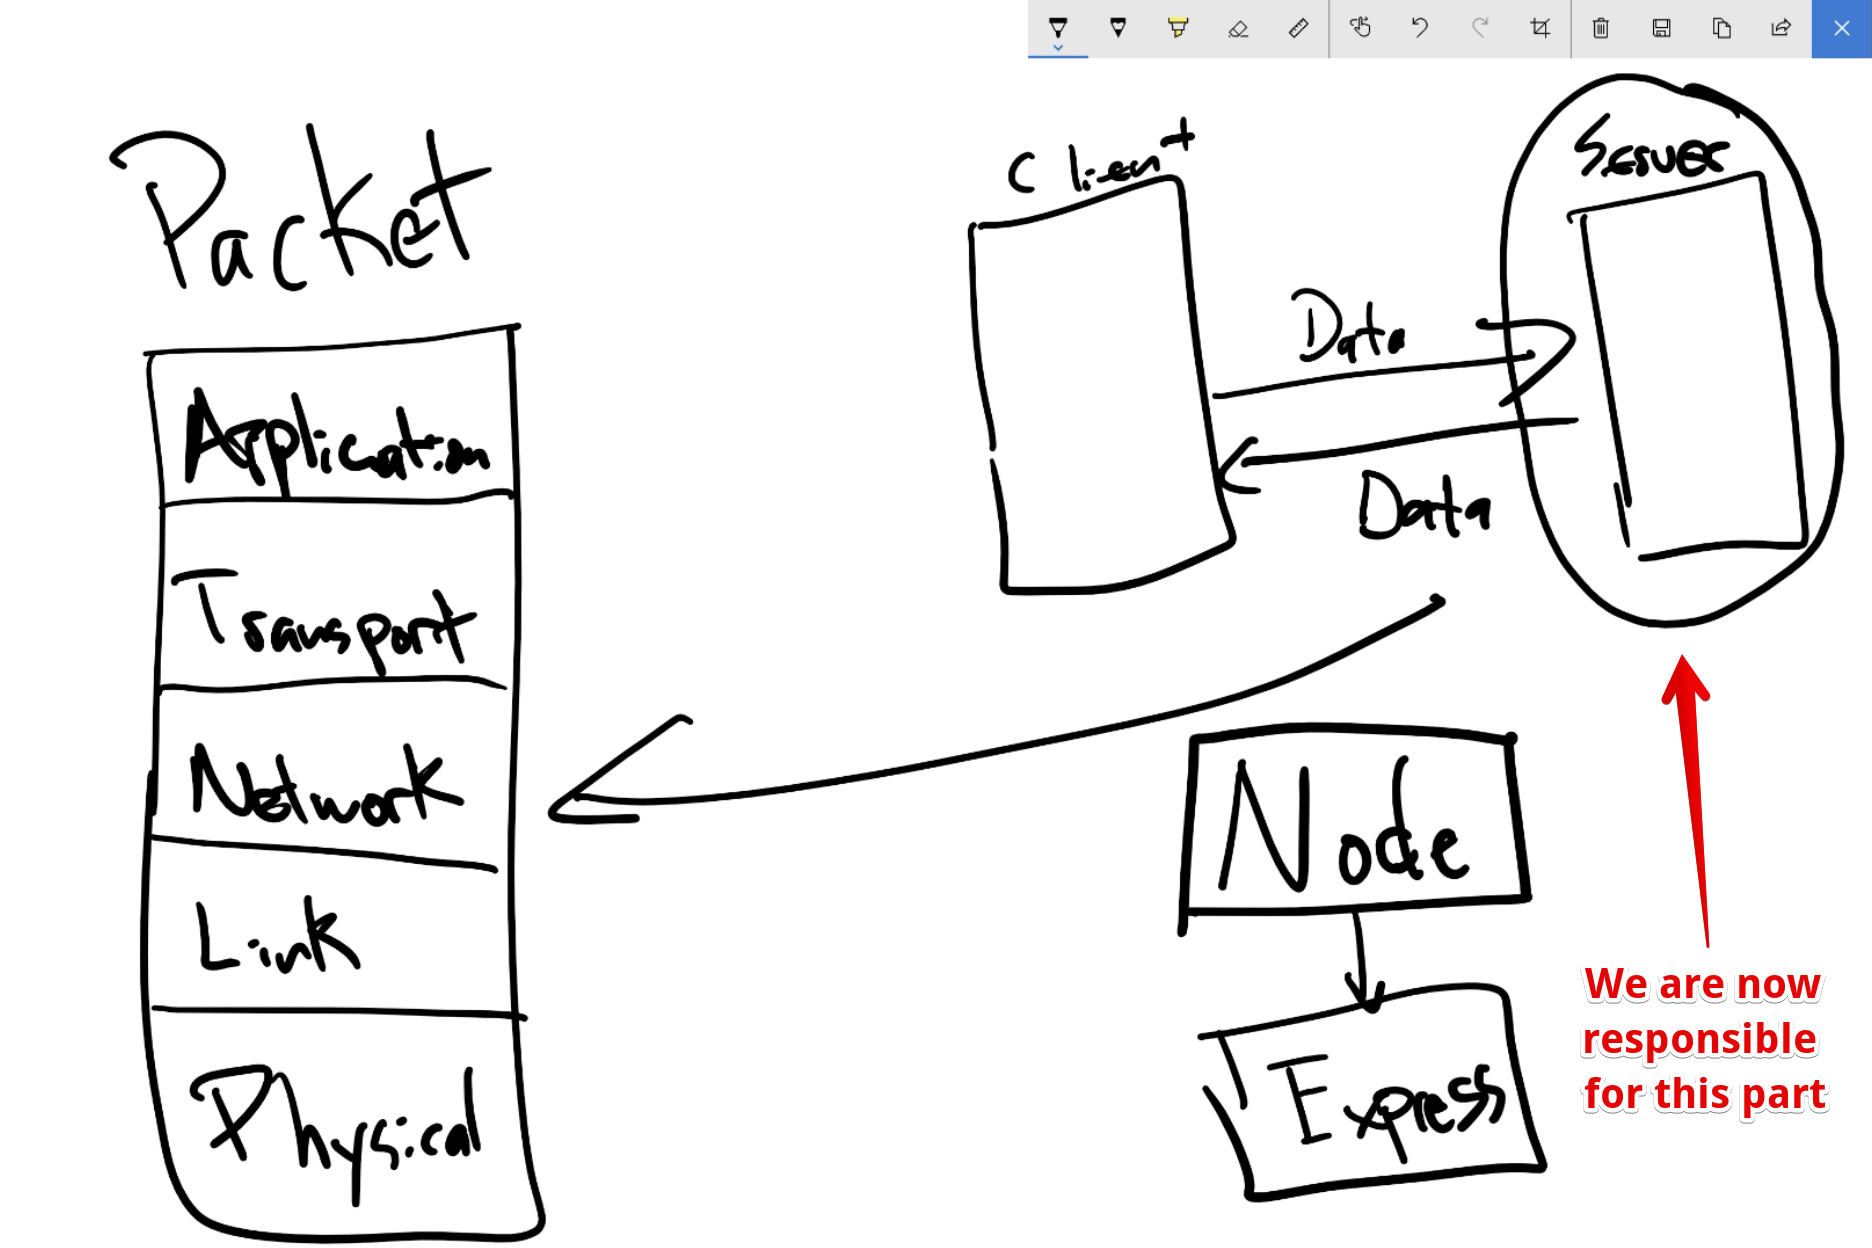 Packet
Application
Transport
Network
Link
Physical
Client
Server
Data
Data
Node
Express
We are now
responsible
for this part